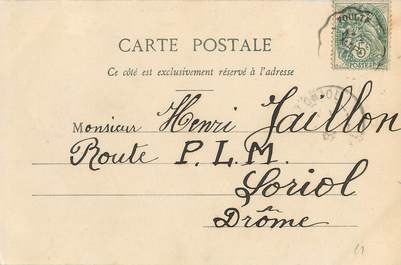 CARTE POSTALE
Ce côté est exclusivement réservé à l'adresse
5
POSTES
Monsieur Henri Jaillon
Route P.L.M.
Loriol
Drôme